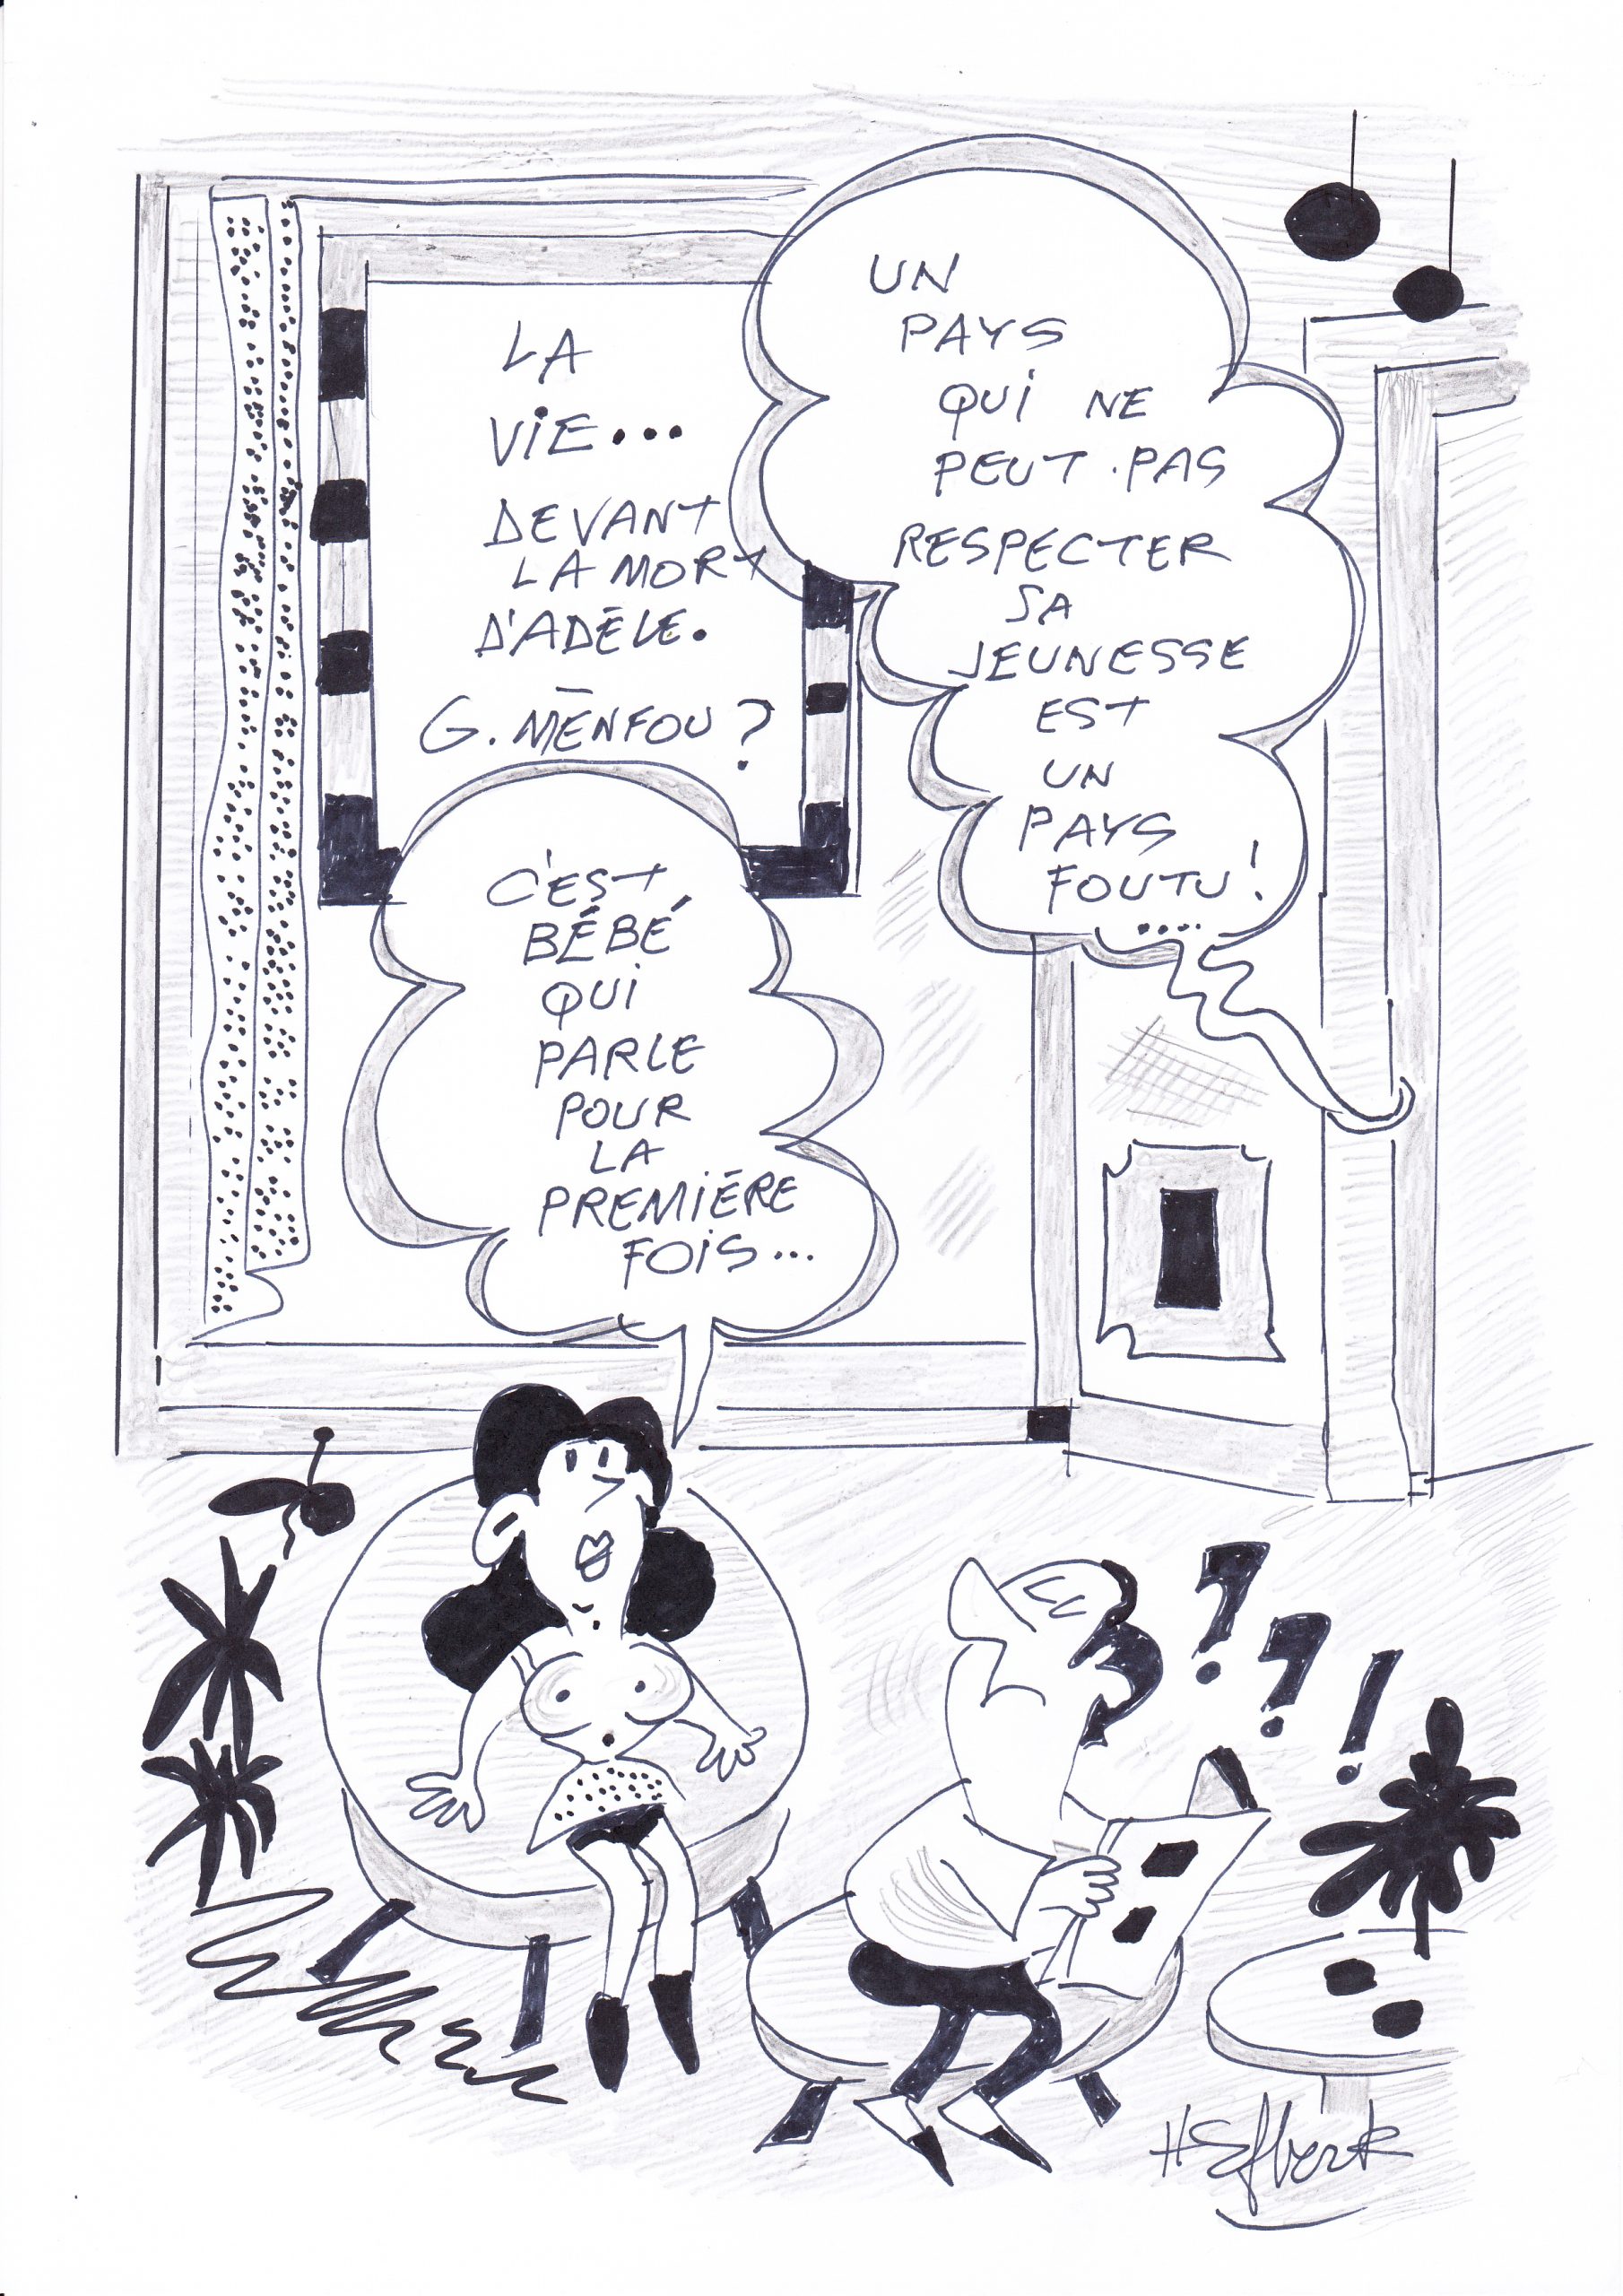 LA
ViE...
DEVANT
LA MORT
D'ADÈLE.
G. MENFOU ?
UN
PAYS
QUI NE
PEUT PAS
RESPECTER
SA
JEUNESSE
EST
UN
PAYS
FOUTU!
....
C'EST
BÉBÉ
QUI
PARLE
POUR
LA
PREMIÈRE
FOIS...
? ? !